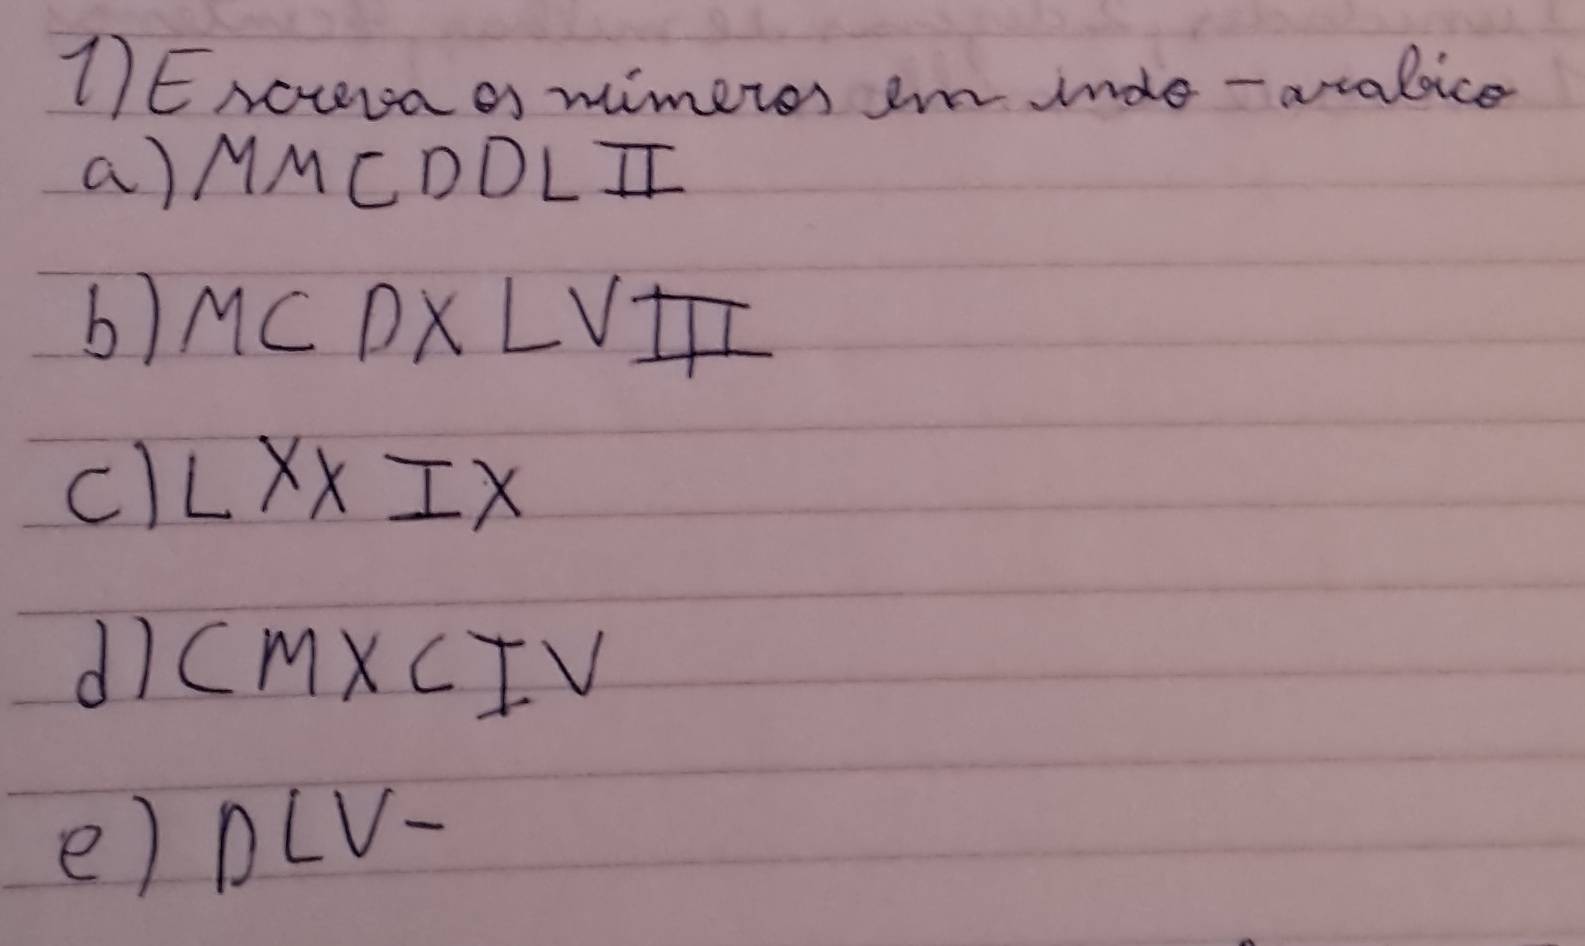 1) Escreva os números em indo-arabico
a) MMCDDLII
b) MCDXLVIII
c) LXXIX
d) CMXCIV
e) DLV-